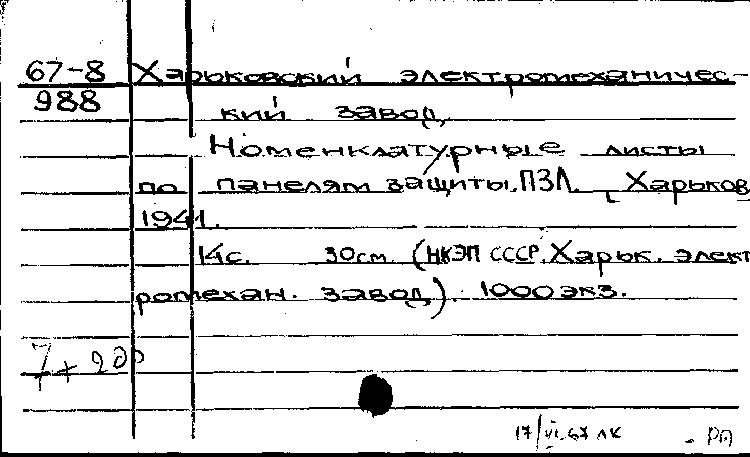 67-8 Харьковский электромеханичес-
988 кий завод.
Номенклатурные листы
по панелям защиты ПЗЛ. [Харьков
1941.
14с. 30см. (НКЭП СССР. Харьк. элект
ромехан. завод). 1000 экз.
7+
17/VI.67 ЛК